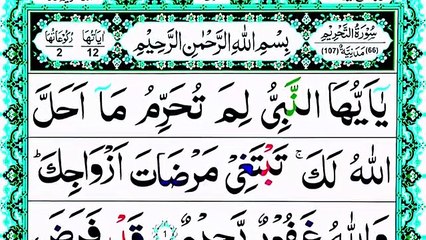 سُوْرَةُ التَّحْرِيْمِ
(66) مَدَنِيَّةٌ (107)
بِسْمِ اللّٰهِ الرَّحْمٰنِ الرَّحِيْمِ
اٰيَاتُهَا 12
رُكُوْعَاتُهَا 2
يٰۤاَيُّهَا النَّبِيُّ لِمَ تُحَرِّمُ مَاۤ اَحَلَّ
اللّٰهُ لَكَ ۚ تَبْتَغِيْ مَرْضَاتَ اَزْوَاجِكَ ؕ
وَاللّٰهُ غَفُوْرٌ رَّحِيْمٌ ۝۱ قَدْ فَرَضَ